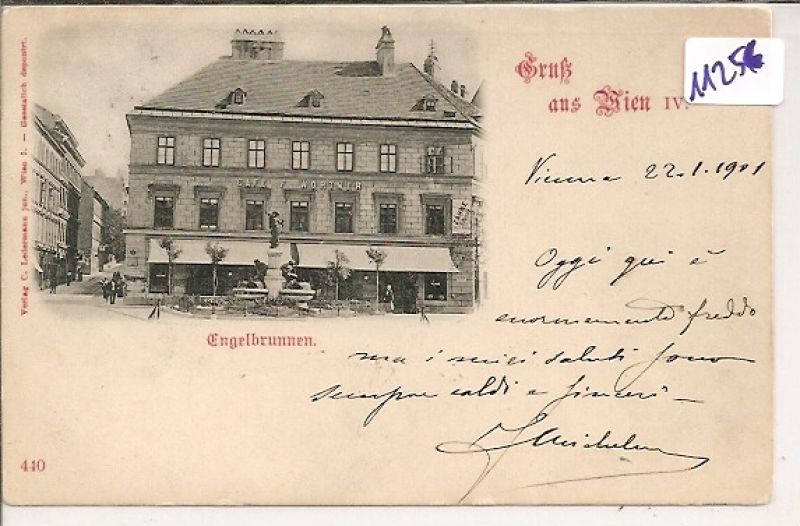 Verlag C. Ledermann jun., Wien I. — Gesetzlich deponirt.
Gruß
aus Wien IV.
11256
CAFE F. WORTNER
Vienna 22.1.1901
Oggi qui è
enormemente freddo
ma i miei saluti sono
sempre caldi e sinceri —
Engelbrunnen.
440